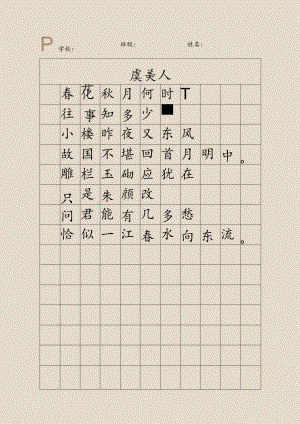 P 学校： 班级： 姓名：
虞美人
春花秋月何时T
往事知多少■
小楼昨夜又东风
故国不堪回首月明中。
雕栏玉砌应犹在
只是朱颜改
问君能有几多愁
恰似一江春水向东流。